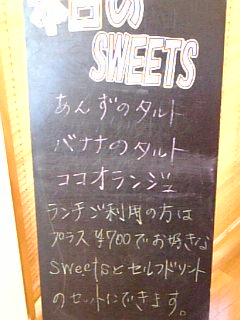 本日の
SWEETS
あんずのタルト
バナナのタルト
ココオランジュ
ランチご利用の方は
プラス ¥700でお好きな
sweetsとセルフドリンク
のセットにできます。